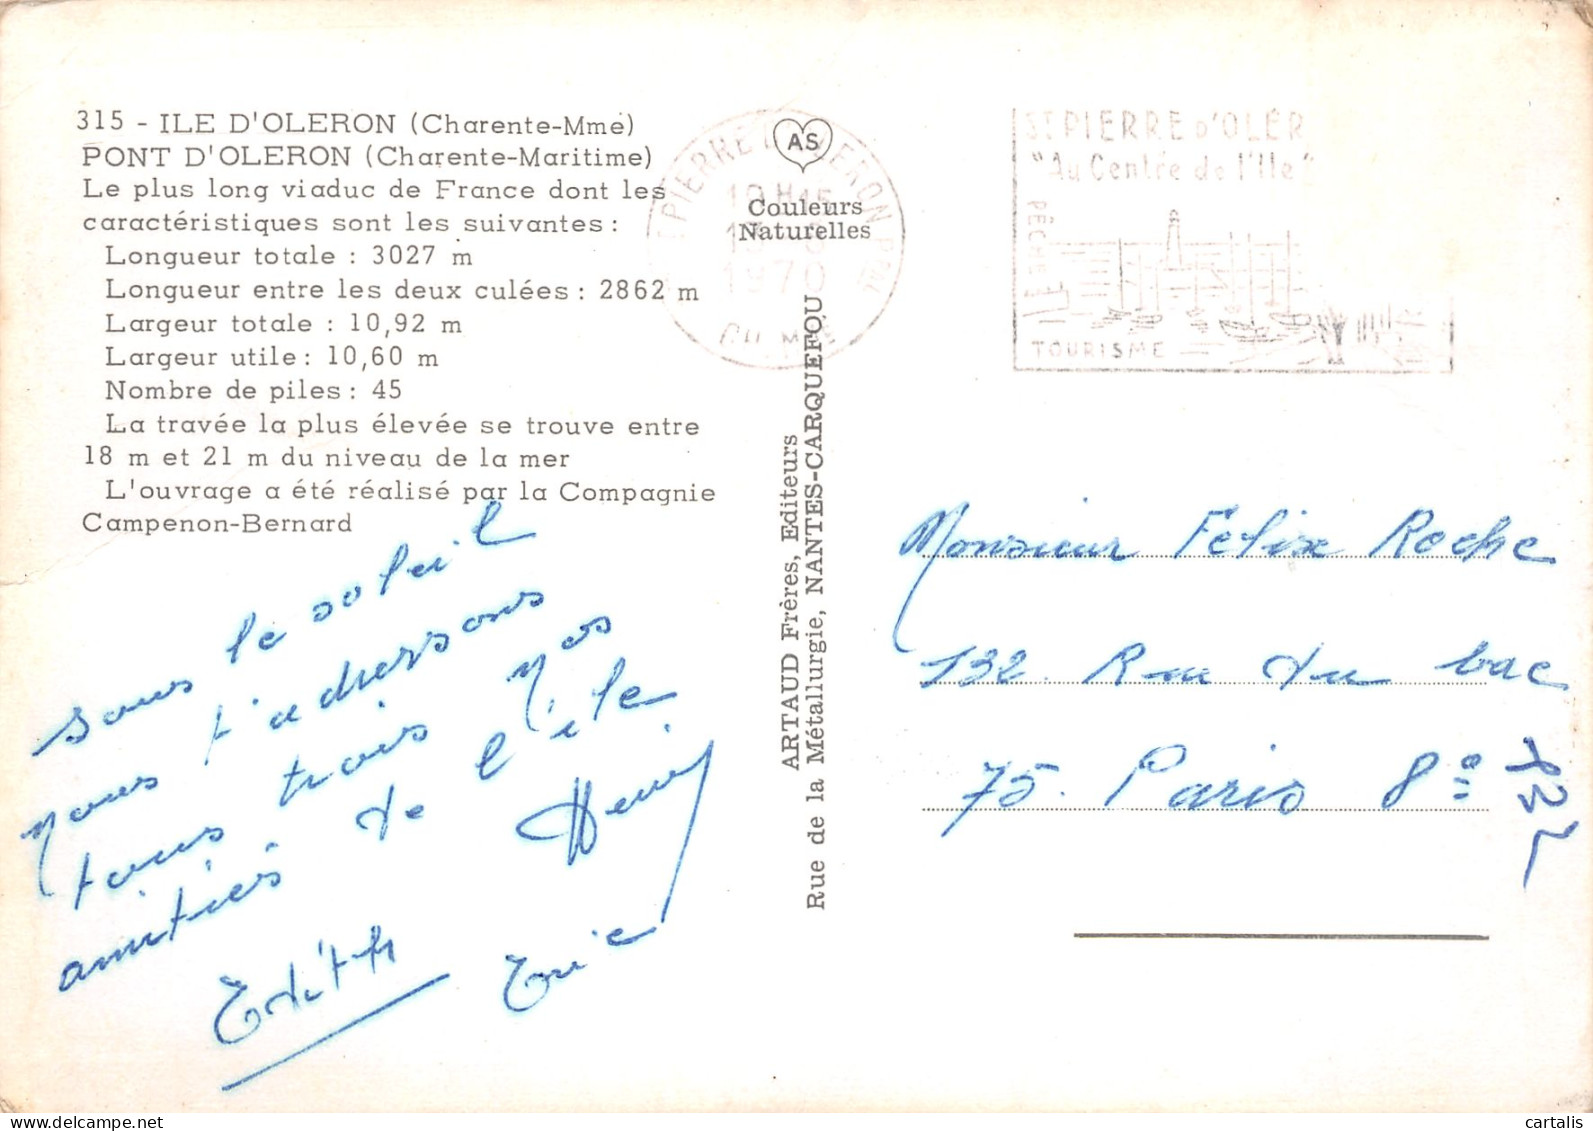 315 - ILE D'OLERON (Charente-Mme)
PONT D'OLERON (Charente-Maritime)
Le plus long viaduc de France dont les
caractéristiques sont les suivantes :
Longueur totale : 3027 m
Longueur entre les deux culées : 2862 m
Largeur totale : 10,92 m
Largeur utile : 10,60 m
Nombre de piles : 45
La travée la plus élevée se trouve entre
18 m et 21 m du niveau de la mer
L'ouvrage a été réalisé par la Compagnie
Campenon-Bernard
sous le soleil
nous t'adressons
tous trois nos
amitiés de l'île
Henri
Edith
Eric
AS
Couleurs
Naturelles
ARTAUD Frères, Editeurs
Rue de la Métallurgie, NANTES-CARQUEFOU
PIERRE D'OLERON
19 H 15
1970
CH. MME
ST PIERRE D'OLER
"Au Centre de l'Ile"
PÊCHE
TOURISME
Monsieur Felix Roche
132. Rue du bac
75. Paris 8e